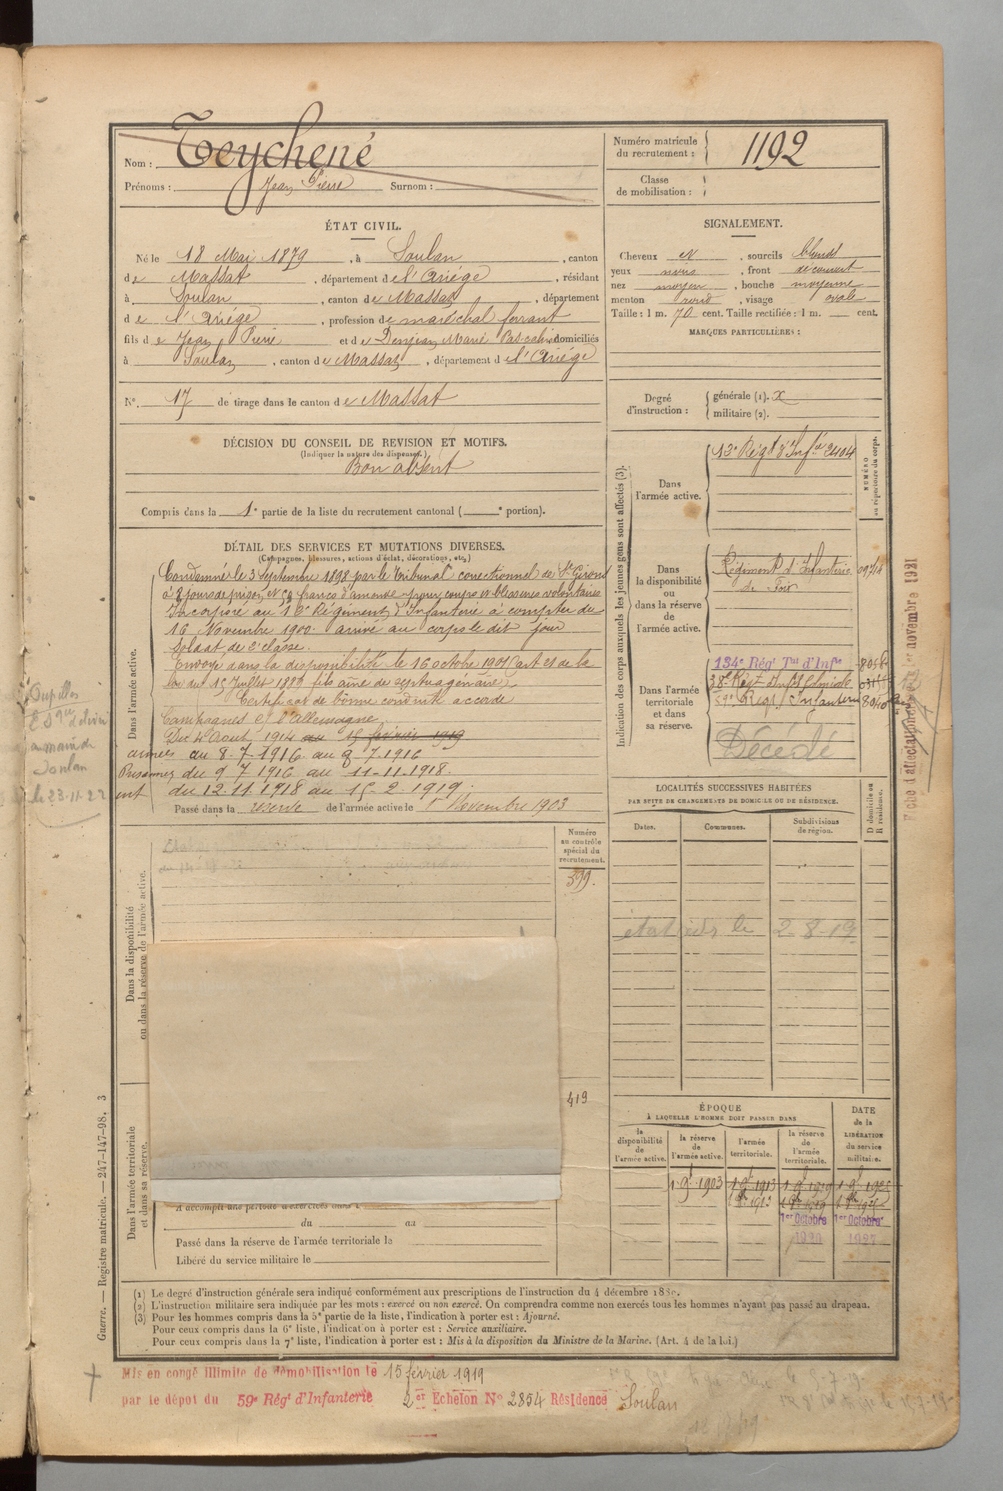 Nom : Teychené
Prénoms : Jean Pierre Surnom :
Numéro matricule du recrutement : 1192
Classe de mobilisation :
ÉTAT CIVIL.
Né le 18 Mai 1879, à Soulan, canton
de Massat, département de l'Ariége, résidant
à Soulan, canton de Massat, département
de l'Ariége, profession de maréchal ferrant
fils de Jean Pierre et de Denjean Marie domiciliés
à Soulan, canton de Massat, département de l'Ariége
N° 17 de tirage dans le canton de Massat
SIGNALEMENT.
Cheveux et, sourcils blonds
yeux noirs, front découvert
nez moyen, bouche moyenne
menton rond, visage ovale
Taille : 1 m. 70 cent. Taille rectifiée : 1 m. — cent.
MARQUES PARTICULIÈRES :
DÉCISION DU CONSEIL DE REVISION ET MOTIFS.
(Indiquer la nature des dispenses.)
Bon absent
Compris dans la 1e partie de la liste du recrutement cantonal ( e portion).
Degré d'instruction : générale (1).
militaire (2).
DÉTAIL DES SERVICES ET MUTATIONS DIVERSES.
(Campagnes, blessures, actions d'éclat, décorations, etc.)
Dans l'armée active.
Condamné le 3 Septembre 1898 par le Tribunal correctionnel de St Girons
à 8 jours de prison et 50 francs d'amende pour coups et blessures volontaires
Incorporé au 13e Régiment d'Infanterie à compter du
16 Novembre 1900. arrivé au corps le dit jour
Soldat de 2e classe.
Envoyé dans la disponibilité le 16 octobre 1901 (art 21 de la
loi du 15 Juillet 1889 fils ainé de septuagénaire)
Certificat de bonne conduite accordé
Campagnes et l'allemagne
Du 4 Aout 1914 au 15 février 1919
armées au 8.7.1916 au 9.7.1916
Prisonnier du 9 7 1916 au 11-11-1918.
int du 12.11.1918 au 15-2-1919.
Passé dans la réserve de l'armée active le 1er Novembre 1903
Soulan
le 23-11-22
Indication des corps auxquels les jeunes gens sont affectés (3).
NUMÉRO au répertoire du corps.
Dans l'armée active.
13e Régt d'Infie 2404
Dans la disponibilité ou dans la réserve de l'armée active.
Régiment d'Infanterie
de Foix
Dans l'armée territoriale et dans sa réserve.
134e Régt Tal d'Infie
38e Régt d'Inf Coloniale
59e Régt d'Infanterie
Décédé
Fiche d'affectation novembre 1921
LOCALITÉS SUCCESSIVES HABITÉES
PAR SUITE DE CHANGEMENTS DE DOMICILE OU DE RÉSIDENCE.
Dates. Communes. Subdivisions de région. D domicile ou R résidence.
2-8-19
Dans la disponibilité ou dans la réserve de l'armée active.
Numéro au contrôle spécial du recrutement.
399.
419
Dans l'armée territoriale et dans sa réserve.
A accompli une période d'exercices dans l
du au
Passé dans la réserve de l'armée territoriale le
Libéré du service militaire le
ÉPOQUE
À LAQUELLE L'HOMME DOIT PASSER DANS
la disponibilité de l'armée active. la réserve de l'armée active. l'armée territoriale. la réserve de l'armée territoriale.
DATE de la LIBÉRATION du service militaire.
1 9b 1903 1 9b 1913 1 9b 1919 1 9b 1925
1er Octobre 1er Octobre
1920 1927
(1) Le degré d'instruction générale sera indiqué conformément aux prescriptions de l'instruction du 4 décembre 1889.
(2) L'instruction militaire sera indiquée par les mots : exercé ou non exercé. On comprendra comme non exercés tous les hommes n'ayant pas passé au drapeau.
(3) Pour les hommes compris dans la 5e partie de la liste, l'indication à porter est : Ajourné.
Pour ceux compris dans la 6e liste, l'indication à porter est : Service auxiliaire.
Pour ceux compris dans la 7e liste, l'indication à porter est : Mis à la disposition du Ministre de la Marine. (Art. 4 de la loi.)
Guerre. — Registre matricule. — 247-147-98. 3
Mis en congé illimité de démobilisation le 15 février 1919
par le dépôt du 59e Régt d'Infanterie 2er Echelon No 2854 Résidence Soulan